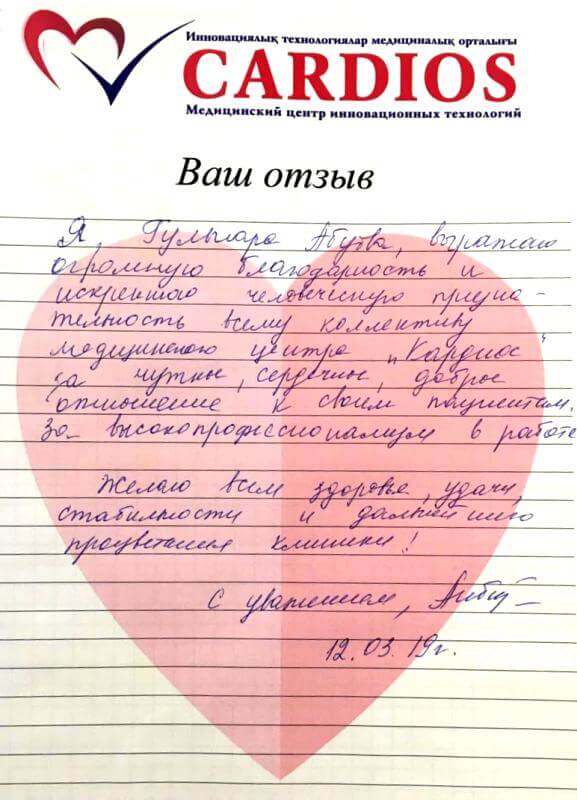 Инновациялық технологиялар медициналық орталығы
CARDIOS
Медицинский центр инновационных технологий
Ваш отзыв
Я, Гульнара, выражаю
огромную благодарность и
искреннюю человеческую призна-
тельность всему коллективу
медицинского центра „Кардиос"
за чуткие, сердечные, доброе
отношение к своим пациентам.
За высокопрофессионализм в работе
Желаю всем здоровья, удачи,
стабильности и дальнейшего
процветания клиники!
С уважением,
12.03.19г.